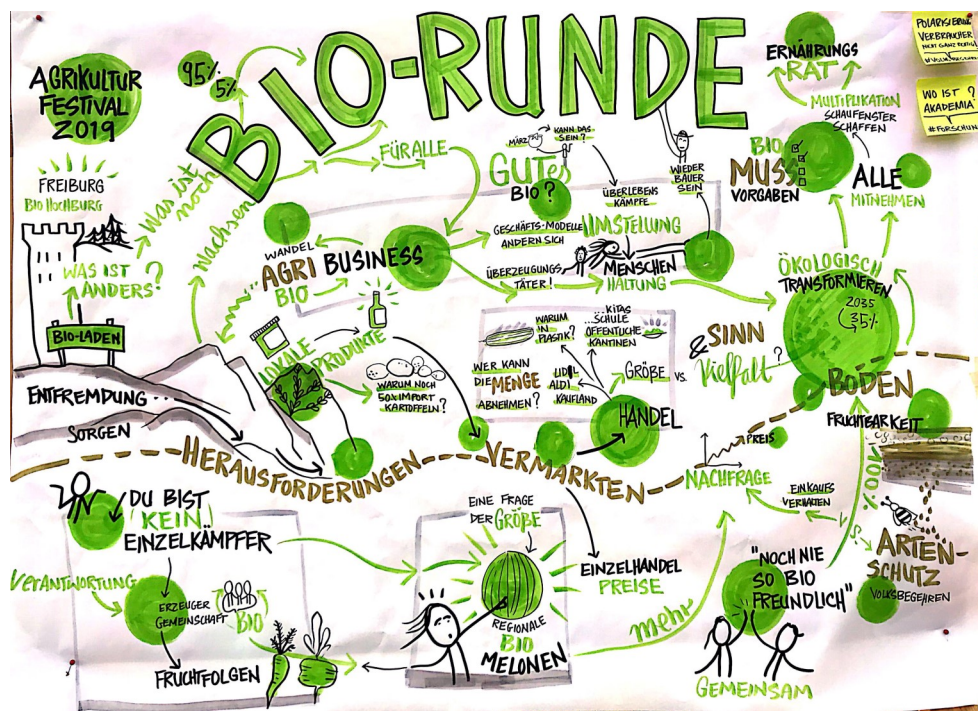 BIO-RUNDE
AGRIKULTUR
FESTIVAL
2019
FREIBURG
BIO HOCHBURG
WAS IST
ANDERS?
BIO-LADEN
ENTFREMDUNG
SORGEN
Was ist
noch
95%
5%
Wachsen
FÜR ALLE
WANDEL
AGRI BUSINESS
BIO
LOKALE
PRODUKTE
WARUM NOCH
50% IMPORT
KARTOFFELN?
MÄRZ
KANN DAS
SEIN?
GUTES
BIO?
ÜBERLEBENS
KÄMPFE
WIEDER
BAUER
SEIN
GESCHÄFTS-MODELLE
ÄNDERN SICH
UMSTELLUNG
ÜBERZEUGUNGS
TÄTER!
MENSCHEN
HALTUNG
WARUM
IN
PLASTIK?
...KITAS
SCHULE
ÖFFENTLICHE
KANTINEN
WER KANN
DIE MENGE
ABNEHMEN?
LIDL
ALDI
KAUFLAND
GRÖßE VS.
HANDEL
SINN
& Vielfalt?
ERNÄHRUNGS
RAT
MULTIPLIKATION
SCHAUFENSTER
SCHAFFEN
BIO
MUSS
VORGABEN
ALLE
MITNEHMEN
ÖKOLOGISCH
TRANSFORMIEREN
2035
35%
POLARISIERUNG
VERBRAUCHER
WO IST ?
AKADEMIA
BODEN
FRUCHTBARKEIT
HERAUSFORDERUNGEN
VERMARKTEN
PREIS
NACHFRAGE
EINKAUFS
VERHALTEN
100%
ARTEN-
SCHUTZ
VOLKSBEGEHREN
DU BIST
KEIN
EINZELKÄMPFER
VERANTWORTUNG
ERZEUGER
GEMEINSCHAFT
BIO
FRUCHTFOLGEN
EINE FRAGE
DER GRÖßE
REGIONALE
BIO
MELONEN
EINZELHANDEL
PREISE
mehr
"NOCH NIE
SO BIO
FREUNDLICH"
GEMEINSAM